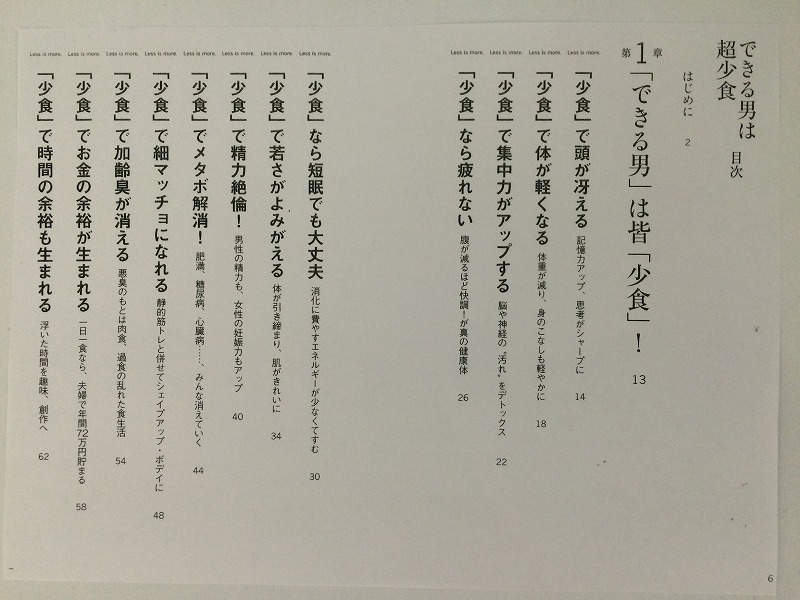 できる男は
超少食
目次
はじめに 2
第1章 「できる男」は皆「少食」! 13
Less is more. 「少食」で頭が冴える 記憶力アップ、思考がシャープに 14
Less is more. 「少食」で体が軽くなる 体重が減り、身のこなしも軽やかに 18
Less is more. 「少食」で集中力がアップする 脳や神経の〝汚れ〟をデトックス 22
Less is more. 「少食」なら疲れない 腹が減るほど快調!が真の健康体 26
Less is more. 「少食」なら短眠でも大丈夫 消化に費やすエネルギーが少なくてすむ 30
Less is more. 「少食」で若さがよみがえる 体が引き締まり、肌がきれいに 34
Less is more. 「少食」で精力絶倫! 男性の精力も、女性の妊娠力もアップ 40
Less is more. 「少食」でメタボ解消! 肥満、糖尿病、心臓病……、みんな消えていく 44
Less is more. 「少食」で細マッチョになれる 静的筋トレと併せてシェイプアップ・ボディに 48
Less is more. 「少食」で加齢臭が消える 悪臭のもとは肉食、過食の乱れた食生活 54
Less is more. 「少食」でお金の余裕が生まれる 一日一食なら、夫婦で年間72万円貯まる 58
Less is more. 「少食」で時間の余裕も生まれる 浮いた時間を趣味、創作へ 62
6